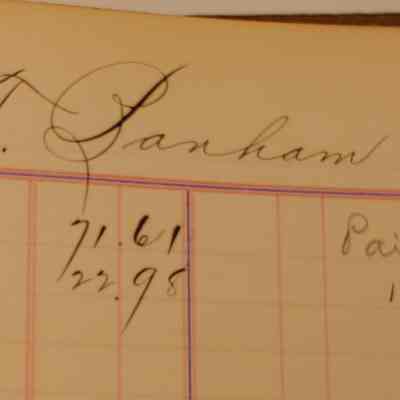 . Lanham
71.61
22.98 Pai
1